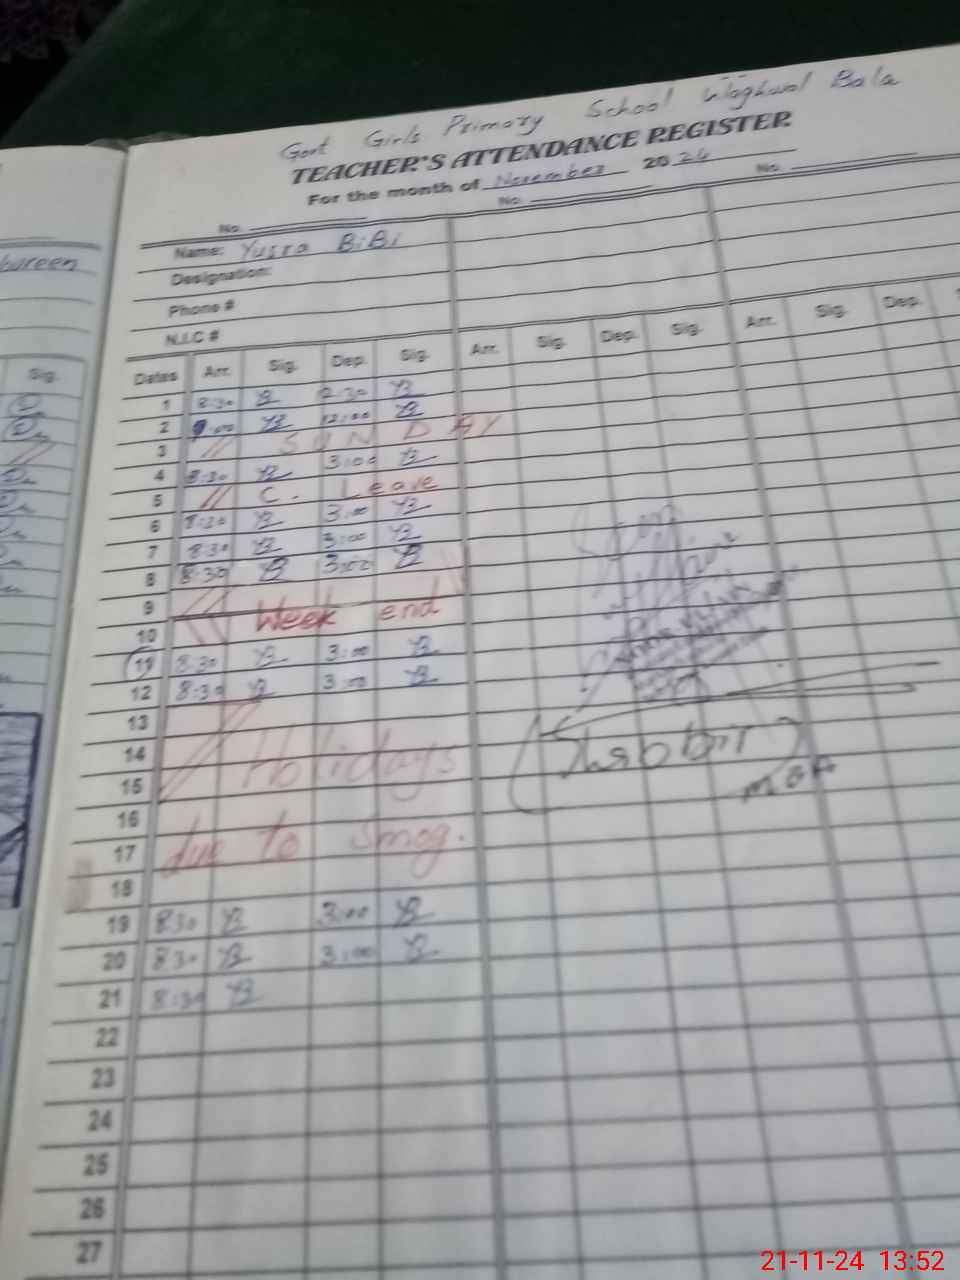 Govt Girls Primary School Waghwal Bala
TEACHER'S ATTENDANCE REGISTER
For the month of November 2024
No. No. No.
Name: Yusra BiBi
Designation:
Phone #
N.I.C #
Dates Arr. Sig. Dep. Sig. Arr. Sig. Dep. Sig. Arr. Sig. Dep.
1 8:30 YB 2:30 YB
2 9:00 YB 12:00 YB
3 // SUNDAY
4 8:30 YB 3:00 YB
5 // C. Leave
6 8:30 YB 3:00 YB
7 8:30 YB 3:00 YB
8 8:30 YB 3:00 YB
9 Week end
10
11 8:30 YB 3:00 YB
12 8:30 YB 3:00 YB
13
14 Holidays
15
16
17 due to Smog.
18
19 8:30 YB 3:00 YB
20 8:30 YB 3:00 YB
21 8:30 YB
22
23
24
25
26
27
bureen
Sig.
(Shabbir)
21-11-24 13:52